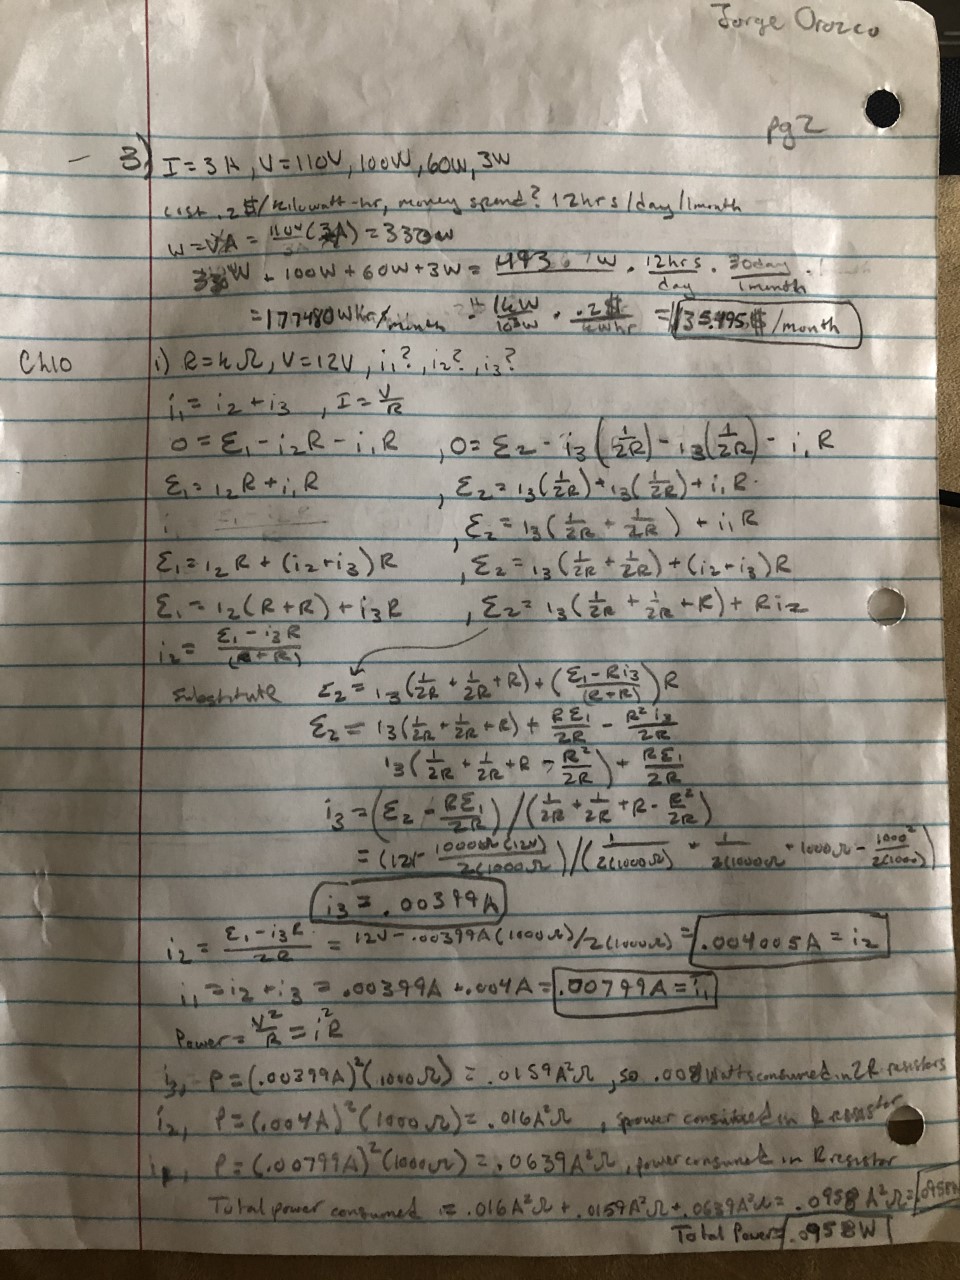 Jorge Orozco
pg 2
3) I = 3A, V = 110V, 100W, 60W, 3W
cost .2$/kilowatt-hr, money spend? 12hrs/day/1month
W = VA = 110V(3A) = 330W
330W + 100W + 60W + 3W = 493 W · 12hrs/day · 30day/1month
= 177480 Whr/month · 1kW/10³W · .2$/kwhr = 35.495$/month
Ch10 1) R = kΩ, V = 12V, i₁?, i₂?, i₃?
i₁ = i₂ + i₃, I = V/R
0 = Ɛ₁ - i₂R - i₁R, 0 = Ɛ₂ - i₃(1/2R) - i₃(1/2R) - i₁R
Ɛ₁ = i₂R + i₁R, Ɛ₂ = i₃(1/2R) + i₃(1/2R) + i₁R
Ɛ₂ = i₃(1/2R + 1/2R) + i₁R
Ɛ₁ = i₂R + (i₂+i₃)R, Ɛ₂ = i₃(1/2R + 1/2R) + (i₂+i₃)R
Ɛ₁ = i₂(R+R) + i₃R, Ɛ₂ = i₃(1/2R + 1/2R + R) + Ri₂
i₂ = Ɛ₁ - i₃R/(R+R)
Substitute Ɛ₂ = i₃(1/2R + 1/2R + R) + (Ɛ₁ - Ri₃/(R+R))R
Ɛ₂ = i₃(1/2R + 1/2R + R) + RƐ₁/2R - R²i₃/2R
i₃(1/2R + 1/2R + R - R²/2R) + RƐ₁/2R
i₃ = (Ɛ₂ - RƐ₁/2R)/(1/2R + 1/2R + R - R²/2R)
= (12V - 1000Ω(12V)/2(1000Ω))/(1/2(1000Ω) + 1/2(1000Ω + 1000Ω - 1000²/2(1000))
i₃ = .00399A
i₂ = Ɛ₁ - i₃R/2R = 12V - .00399A(1000Ω)/2(1000Ω) = .004005A = i₂
i₁ = i₂ + i₃ = .00399A + .004A = .00799A = i₁
Power = V²/R = i²R
i₃, P = (.00399A)²(1000Ω) = .0159A²Ω, so .008Watts consumed in 2R resistors
i₂, P = (.004A)²(1000Ω) = .016A²Ω, power consumed in R resistor
i₁, P = (.00799A)²(1000Ω) = .0639A²Ω, power consumed in R resistor
Total power consumed = .016A²Ω + .0159A²Ω + .0639A²Ω = .0958A²Ω = .0958W
Total Power = .0958W